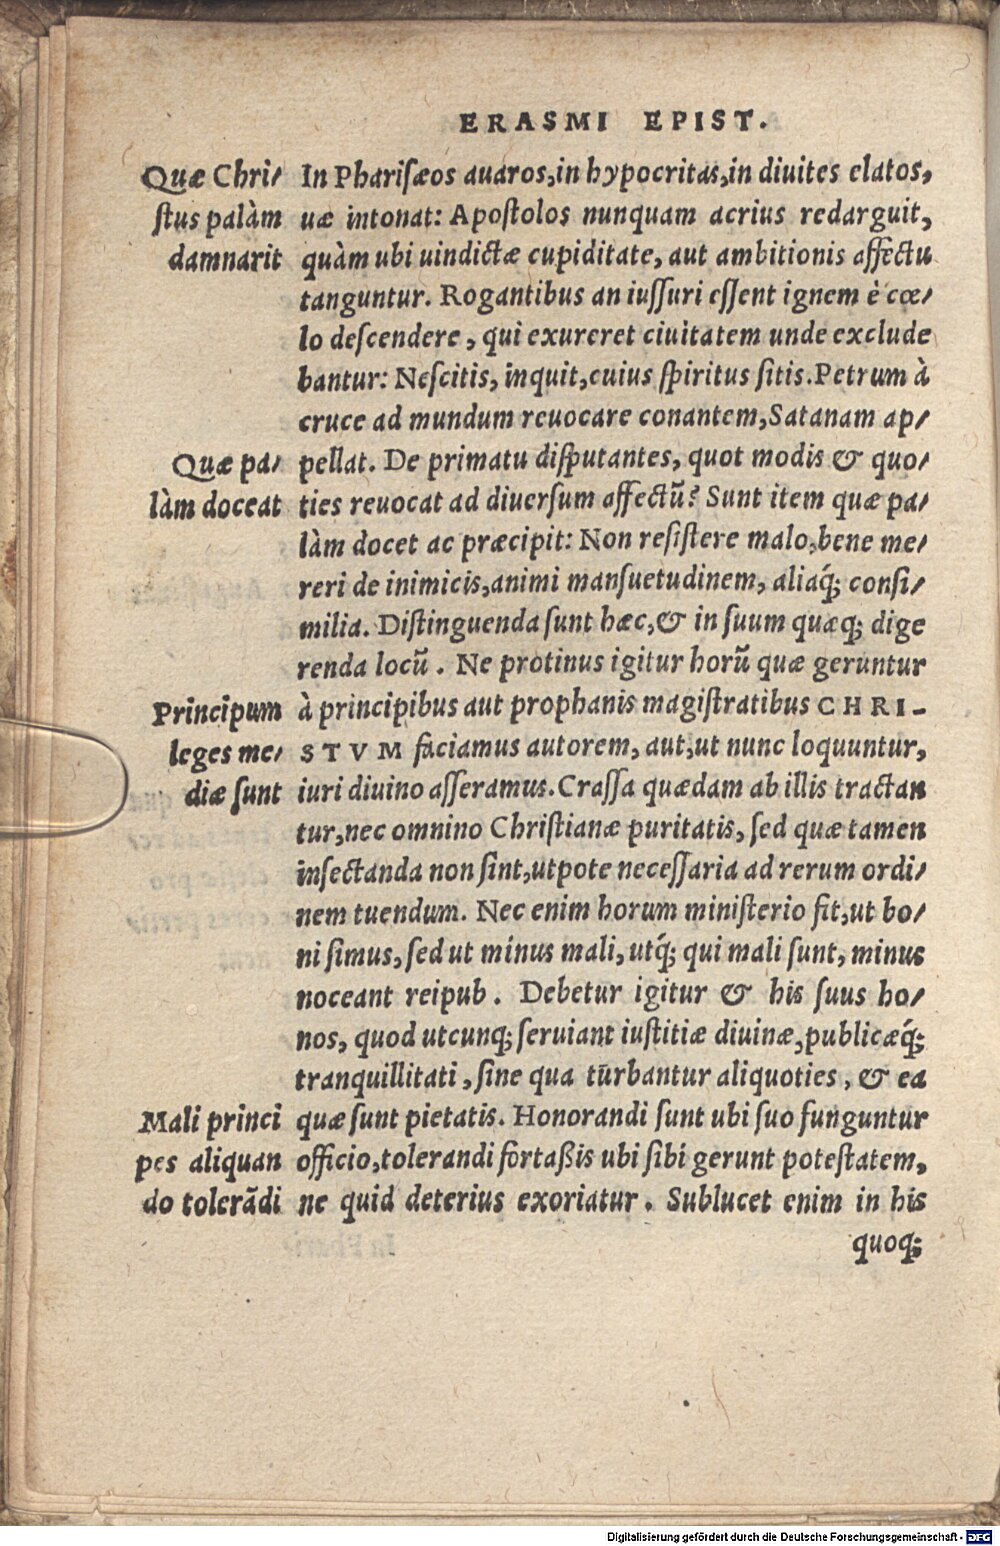 ERASMI EPIST.
Quæ Chri/
stus palàm
damnarit
In Pharisæos auaros, in hypocritas, in diuites elatos,
uæ intonat: Apostolos nunquam acrius redarguit,
quàm ubi uindictæ cupiditate, aut ambitionis affectu
tanguntur. Rogantibus an iussuri essent ignem è cœ/
lo descendere, qui exureret ciuitatem unde exclude
bantur: Nescitis, inquit, cuius spiritus sitis. Petrum à
cruce ad mundum reuocare conantem, Satanam ap/
Quæ pa/
làm doceat
pellat. De primatu disputantes, quot modis & quo/
ties reuocat ad diuersum affectũ? Sunt item quæ pa/
làm docet ac præcipit: Non resistere malo, bene me/
reri de inimicis, animi mansuetudinem, aliaq́; consi/
milia. Distinguenda sunt hæc, & in suum quæq; dige
renda locũ. Ne protinus igitur horũ quæ geruntur
Principum
leges me/
diæ sunt
à principibus aut prophanis magistratibus CHRI-
STVM faciamus autorem, aut, ut nunc loquuntur,
iuri diuino asseramus. Crassa quædam ab illis tractan
tur, nec omnino Christianæ puritatis, sed quæ tamen
insectanda non sint, utpote necessaria ad rerum ordi/
nem tuendum. Nec enim horum ministerio fit, ut bo/
ni simus, sed ut minus mali, utq́; qui mali sunt, minus
noceant reipub. Debetur igitur & his suus ho/
nos, quod utcunq; seruiant iustitiæ diuinæ, publicæq́;
tranquillitati, sine qua turbantur aliquoties, & ea
Mali princi
pes aliquan
do tolerãdi
quæ sunt pietatis. Honorandi sunt ubi suo funguntur
officio, tolerandi fortaßis ubi sibi gerunt potestatem,
ne quid deterius exoriatur. Sublucet enim in his
quoq;
Digitalisierung gefördert durch die Deutsche Forschungsgemeinschaft - DFG